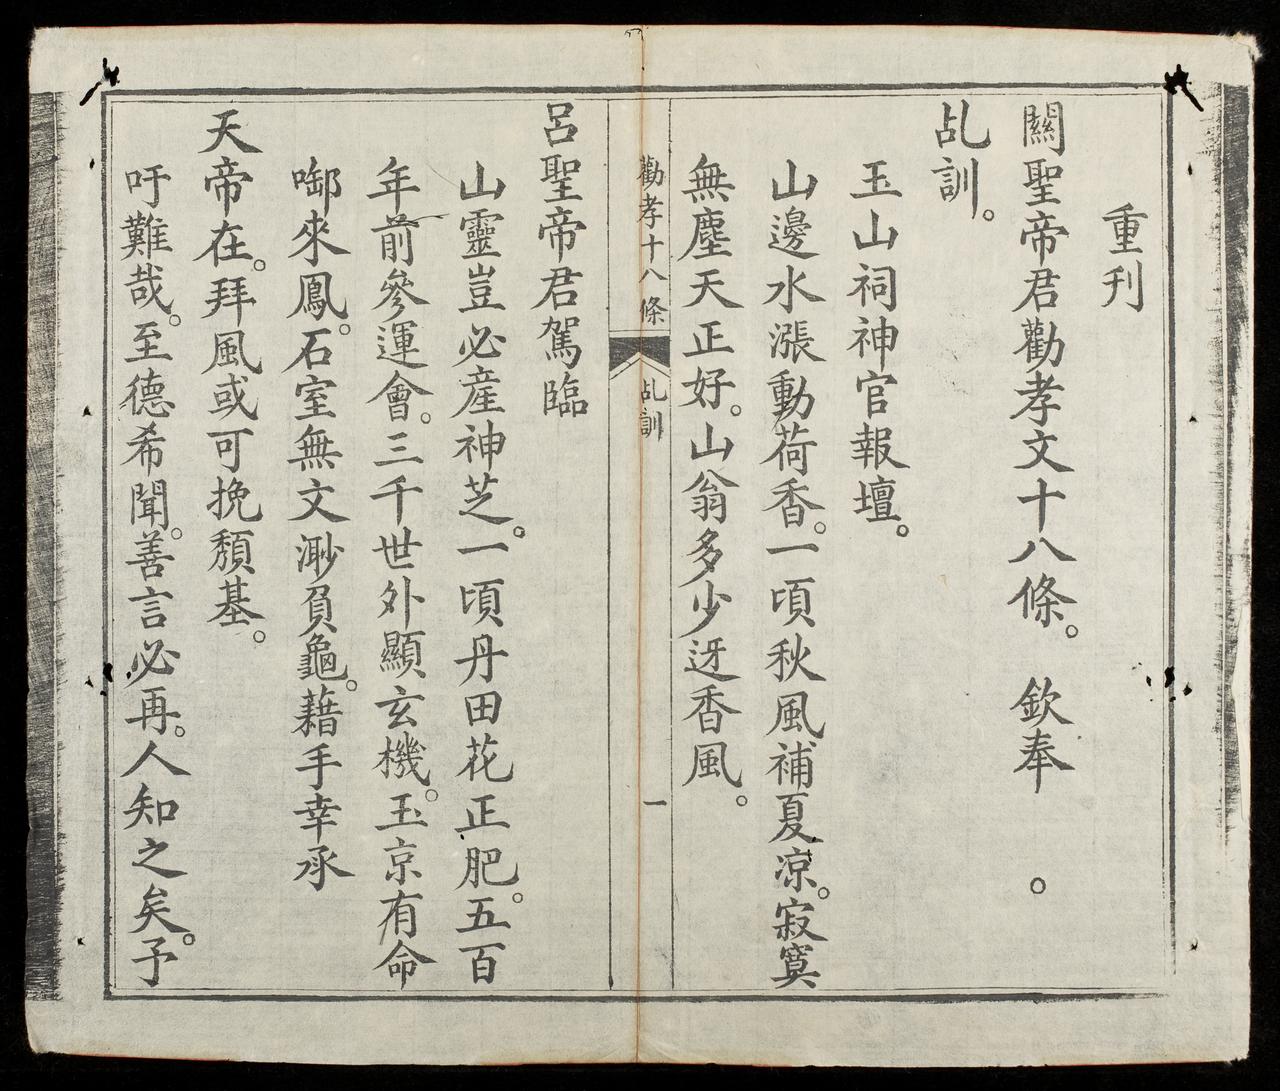 重刊
關聖帝君勸孝文十八條。 欽奉 。
乩訓。
玉山祠神官報壇。
山邊水漲動荷香。一頃秋風補夏凉。寂寞
無塵天正好。山翁多少迓香風。
勸孝十八條 乩訓 一
呂聖帝君駕臨
山靈豈必產神芝。一頃丹田花正肥。五百
年前參運會。三千世外顯玄機。玉京有命
啣來鳳。石室無文渺負龜。藉手幸承
天帝在。拜風或可挽頹基。
吁難哉。至德希聞。善言必再。人知之矣。予